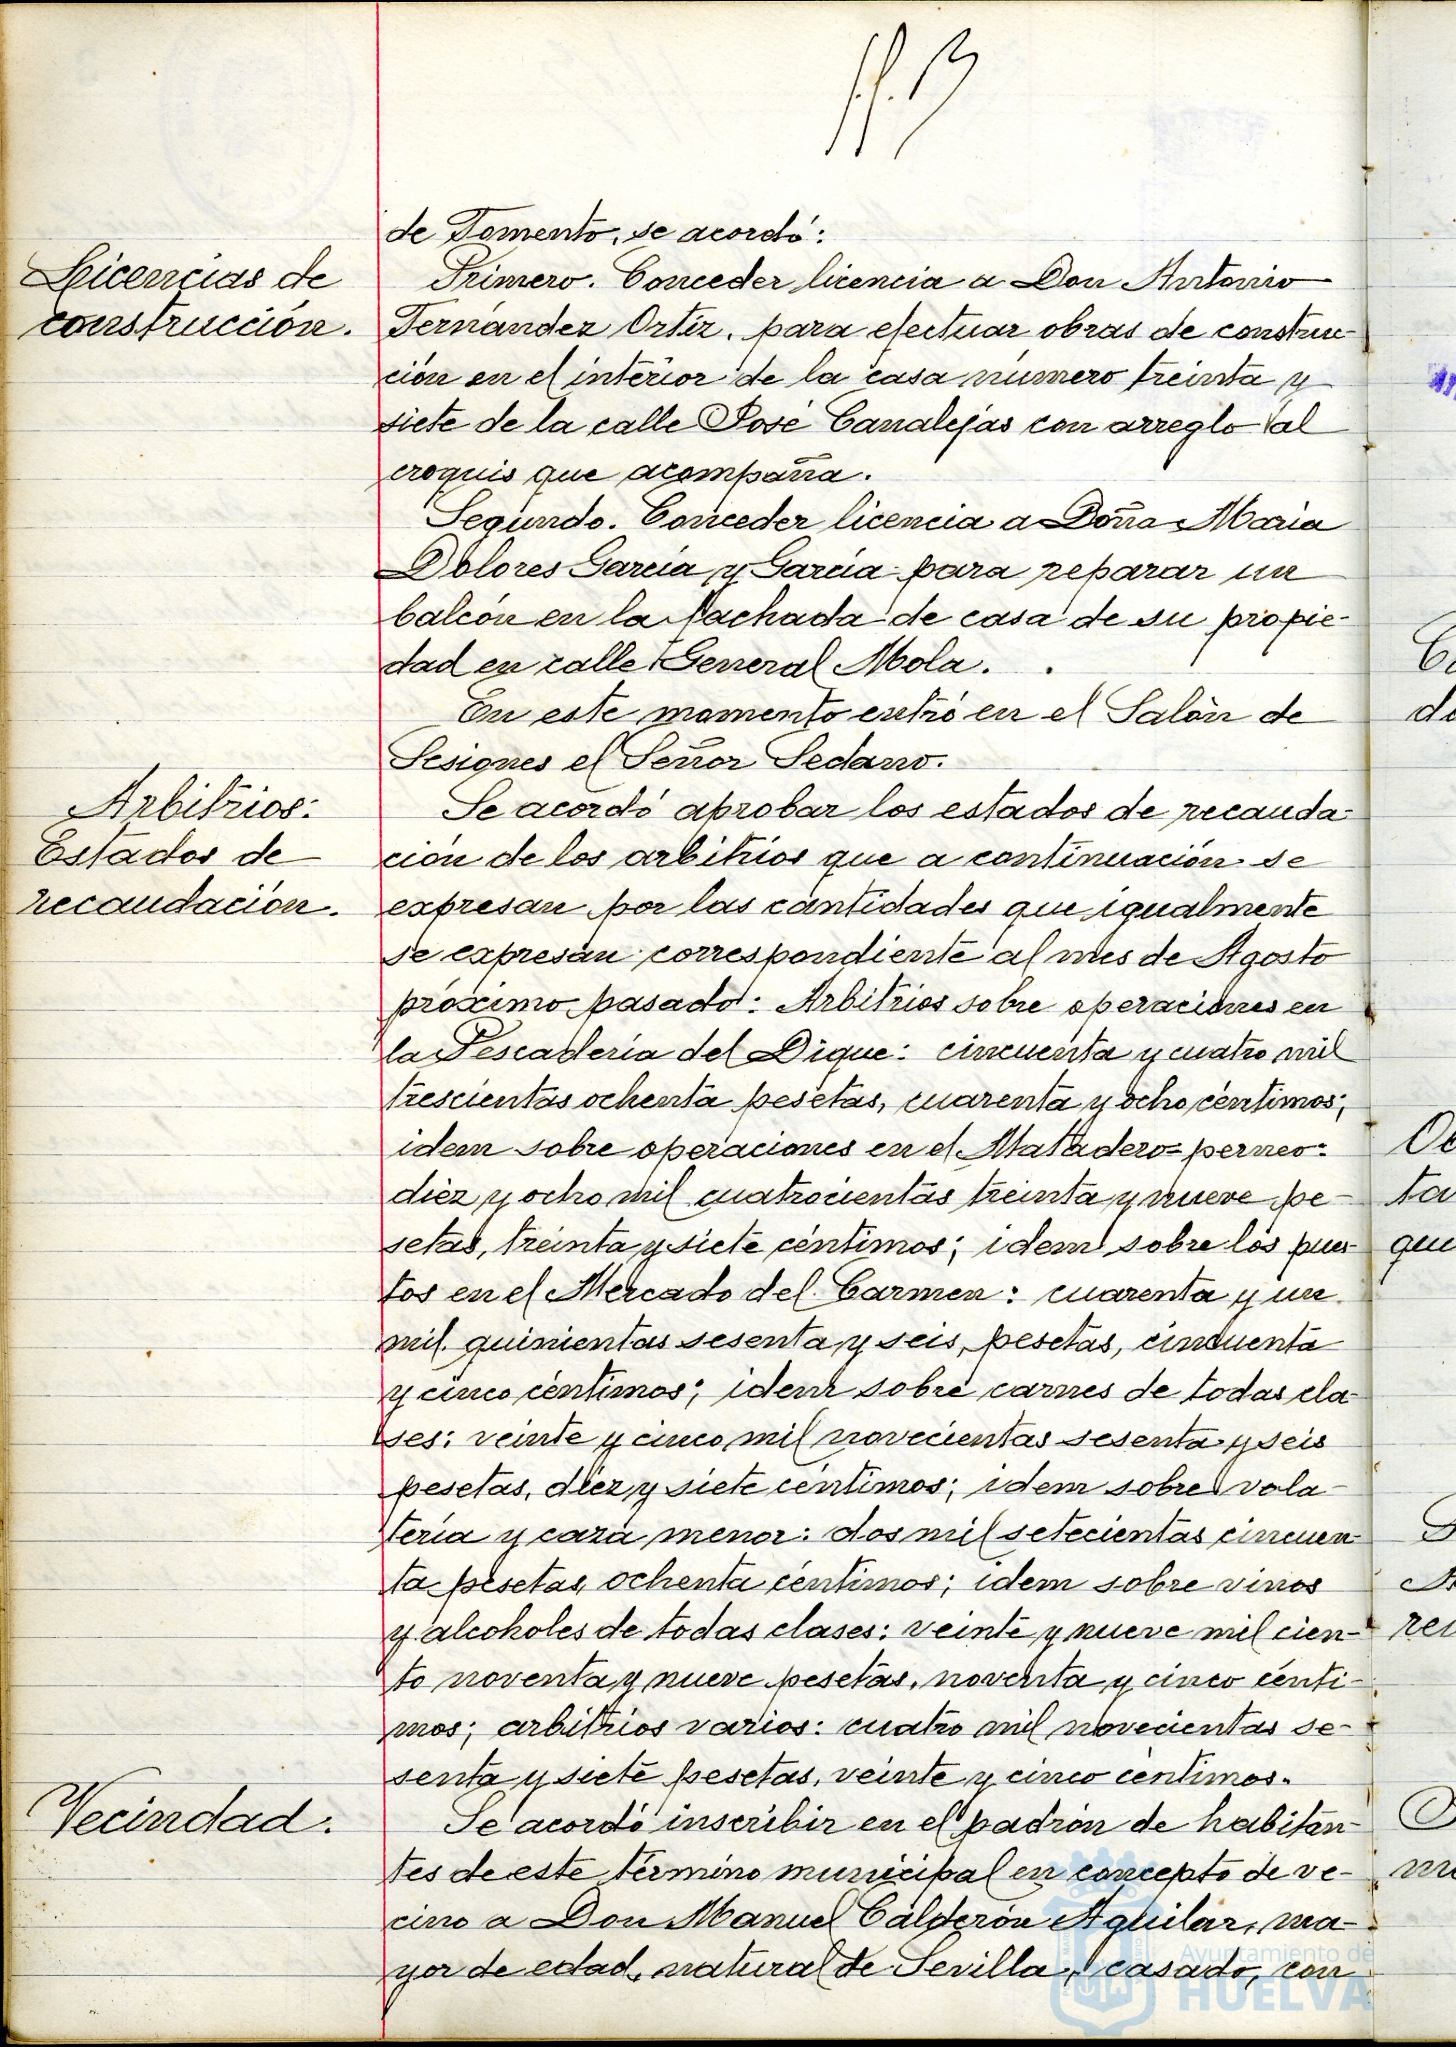 de Fomento, se acordó:
Licencias de
construcción.
Primero. Conceder licencia a Don Antonio
Fernández Ortiz, para efectuar obras de construc-
ción en el interior de la casa número treinta y
siete de la calle José Canalejas con arreglo al
croquis que acompaña.
Segundo. Conceder licencia a Doña Maria
Dolores García y García para reparar un
balcón en la fachada de casa de su propie-
dad en calle General Mola.
En este momento entró en el Salón de
Sesiones el Señor Sedano.
Arbitrios:
Estados de
recaudación.
Se acordó aprobar los estados de recauda-
ción de los arbitrios que a continuación se
expresan por las cantidades que igualmente
se expresan correspondiente al mes de Agosto
próximo pasado: Arbitrios sobre operaciones en
la Pescadería del Dique: cincuenta y cuatro mil
trescientas ochenta pesetas, cuarenta y ocho céntimos;
idem sobre operaciones en el Matadero=perneo=
diez y ocho mil cuatrocientas treinta y nueve pe-
setas, treinta y siete céntimos; idem sobre los pues-
tos en el Mercado del Carmen: cuarenta y un
mil quinientas sesenta y seis, pesetas, cincuenta
y cinco céntimos; idem sobre carnes de todas cla-
ses: veinte y cinco mil novecientas sesenta y seis
pesetas, diez y siete céntimos; idem sobre vola-
tería y caza menor: dos mil setecientas cincuen-
ta pesetas, ochenta céntimos; idem sobre vinos
y alcoholes de todas clases: veinte y nueve mil cien-
to noventa y nueve pesetas, noventa y cinco cénti-
mos; arbitrios varios: cuatro mil novecientas se-
senta y siete pesetas, veinte y cinco céntimos.
Vecindad.
Se acordó inscribir en el padrón de habitan-
tes de este término municipal en concepto de ve-
cino a Don Manuel Calderón Aguilar, ma-
yor de edad, natural de Sevilla, casado, con
Ayuntamiento de
HUELVA